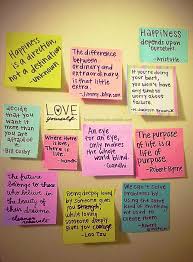 Happiness
is a direction,
not a destination
The difference
between
ordinary and
extraordinary
is that little
extra.
- Jimmy Johnson
Happiness
depends upon
ourselves.
- Aristotle
If you're doing
your best,
you won't
have time
to worry
about failure.
decide
that you
want it
more than
you are
afraid
of it.
Bill Cosby
LOVE
yourself.
Where there
is love,
there is
life.
- Gandhi
An eye for
an eye,
only makes
the whole
world blind.
- Gandhi
The purpose
of life is a
life of
purpose.
- Robert Byrne
The future
belongs to those
who believe
in the
beauty of
their dreams.
Being deeply loved
by someone gives
you strength,
while loving
someone deeply
gives you courage.
- Lao Tzu
We can't solve
problems by
using the same
kind of thinking
we used
when we created
them.